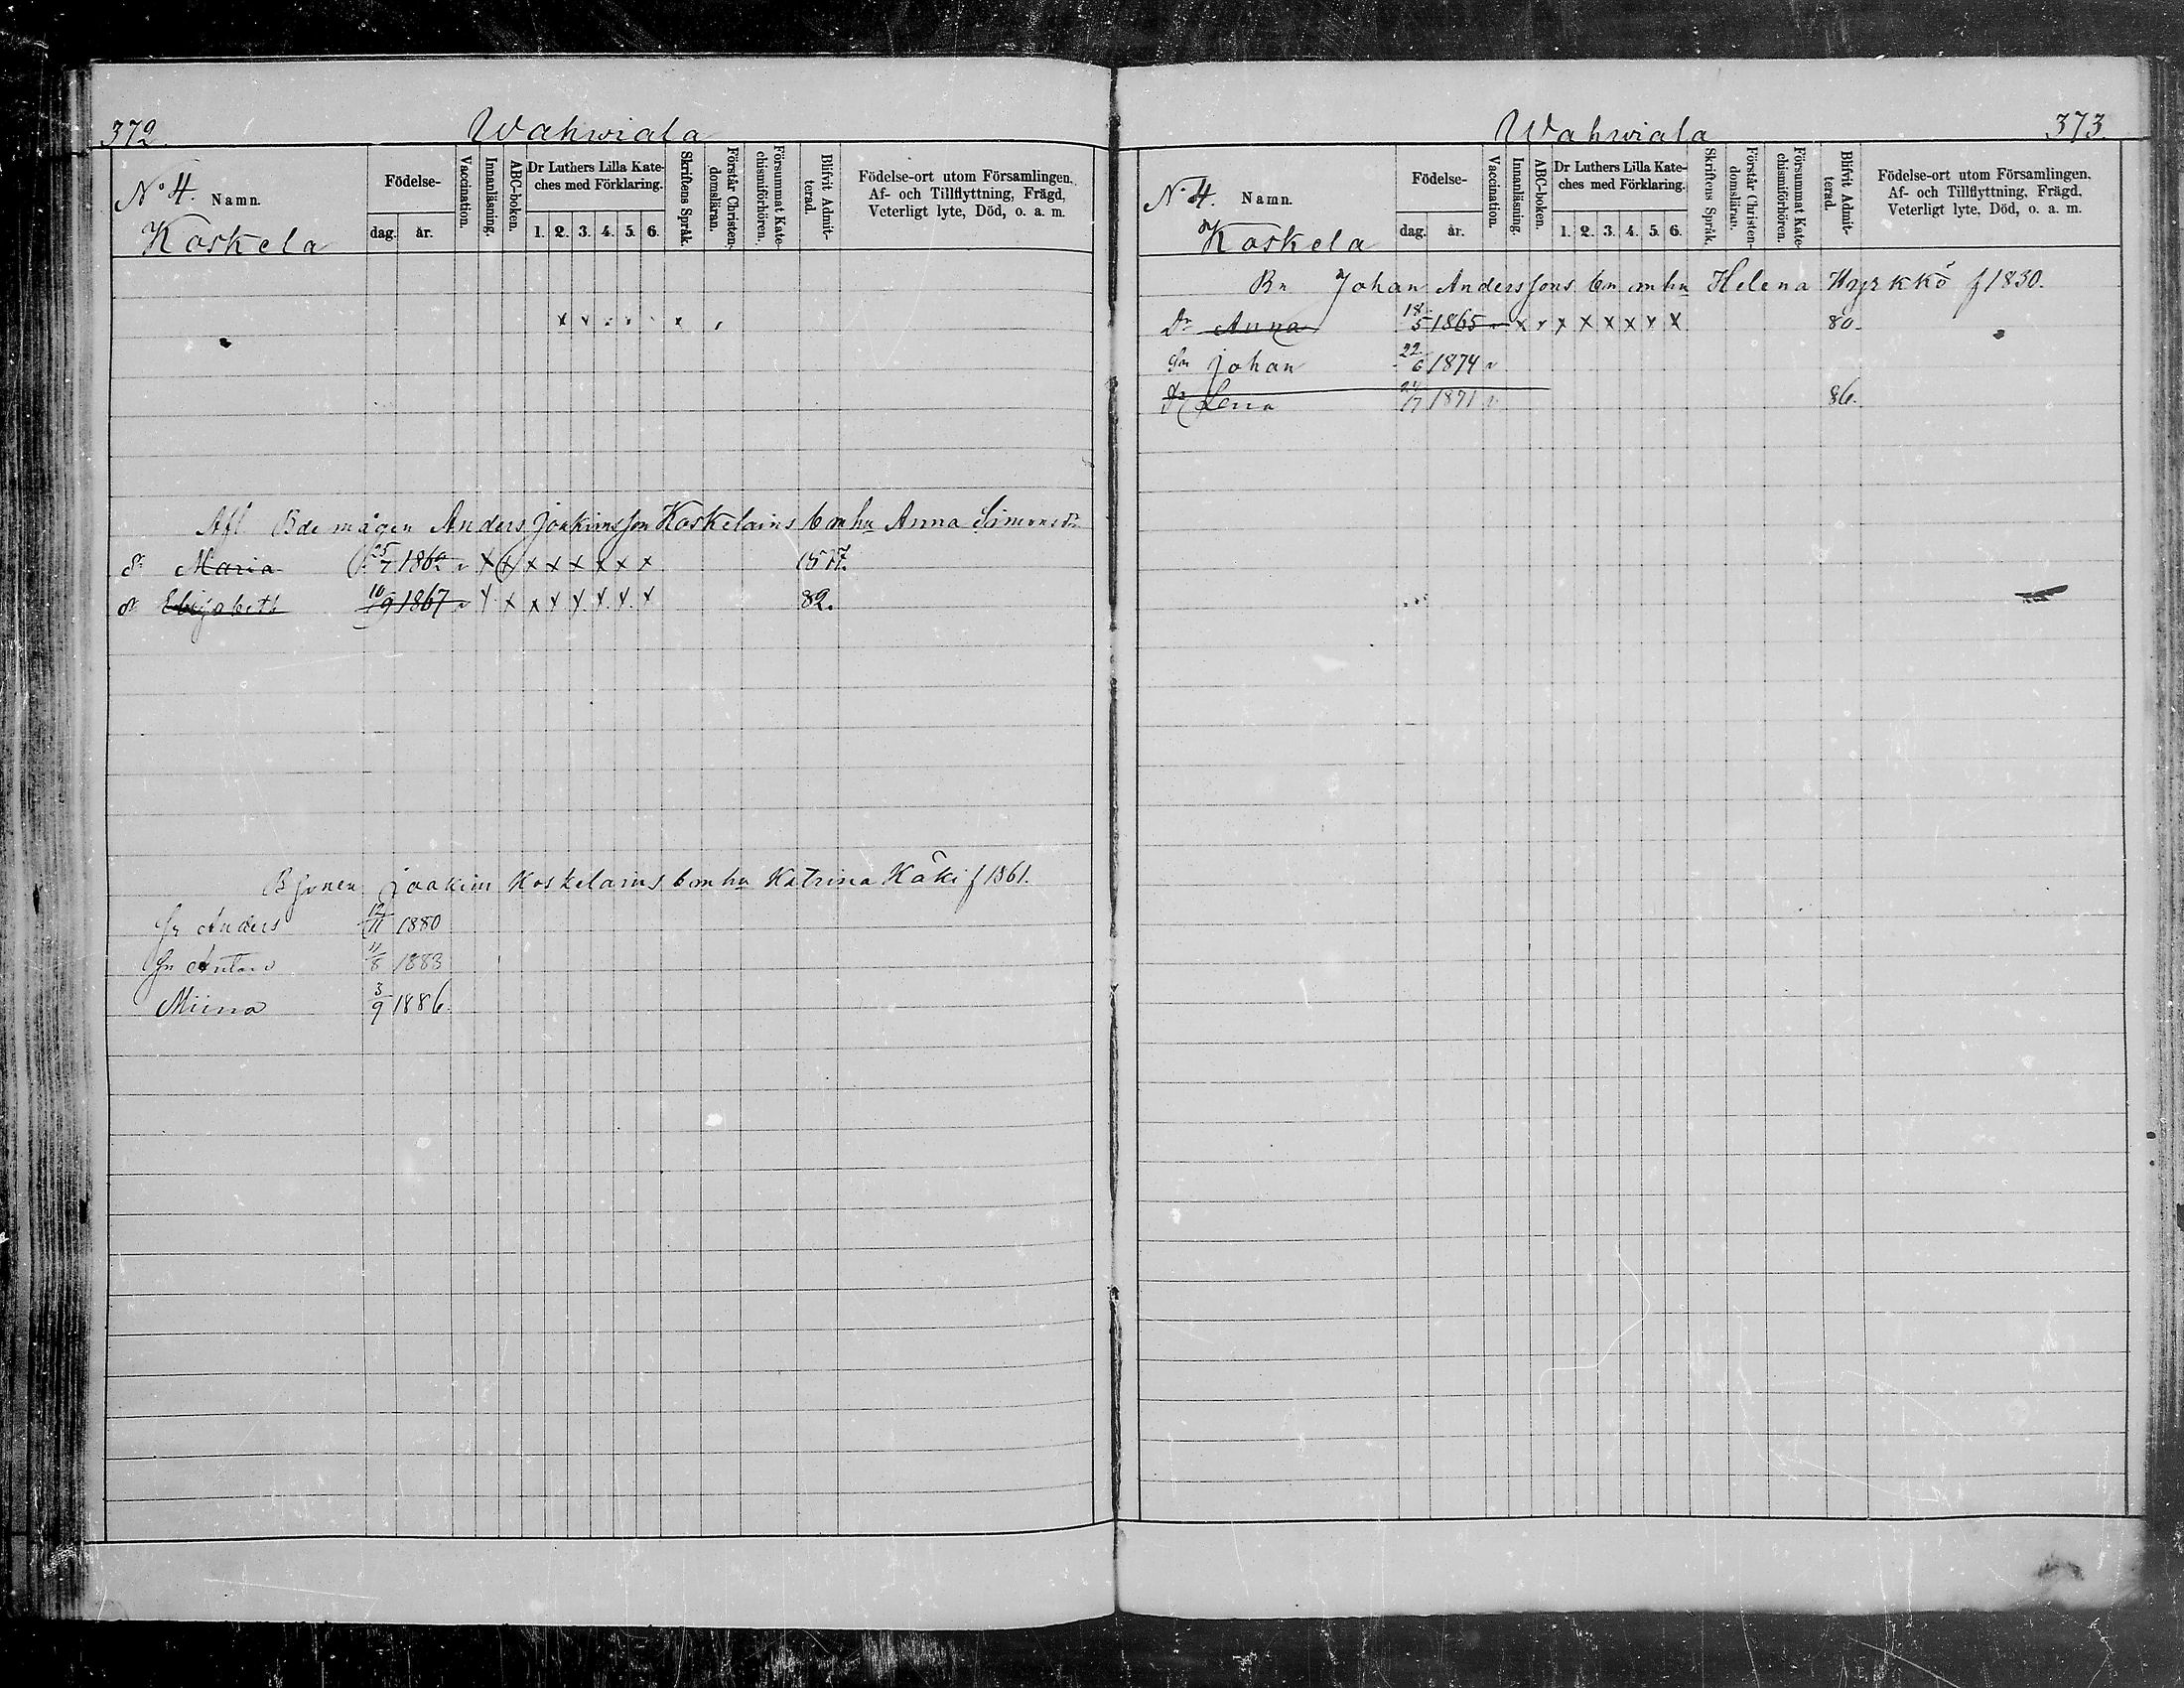 372.
Wahwiala
N° 4. Namn.
Koskela
Födelse-
dag. år.
Vaccination.
Innanläsning.
ABC-boken.
Dr Luthers Lilla Kate-
ches med Förklaring.
1. 2. 3. 4. 5. 6.
Skriftens Språk.
Förstår Christen-
domsläran.
Försummat Kate-
chismiförhören.
Blifvit Admit-
terad.
Födelse-ort utom Församlingen,
Af- och Tillflyttning, Frägd,
Veterligt lyte, Död, o. a. m.
Afl. Bde mågen Anders Joakimsson Koskelains b m hu Anna Simonsdr
dr Maria 25/7 1862 v x x x x x x x x 77.
dr Elisabeth 10/9 1867 v x x x x x x x x 82.
B sonen Joakim Koskelains b m hu Katrina Käki f 1861.
Sn Anders 12/11 1880
Sn Anton 11/8 1883
Miina 3/9 1886.
Wahwiala
373.
N° 4. Namn.
Koskela
Födelse-
dag. år.
Vaccination.
Innanläsning.
ABC-boken.
Dr Luthers Lilla Kate-
ches med Förklaring.
1. 2. 3. 4. 5. 6.
Skriftens Språk.
Förstår Christen-
domsläran.
Försummat Kate-
chismiförhören.
Blifvit Admit-
terad.
Födelse-ort utom Församlingen,
Af- och Tillflyttning, Frägd,
Veterligt lyte, Död, o. a. m.
Bn Johan Anderssons b m hu Helena Hyrkkö f 1830.
Dr Anna 18/5 1865 v x x x x x x x x 80.
Sn Johan 22/6 1874 v
dr Lena 1871 v 86.